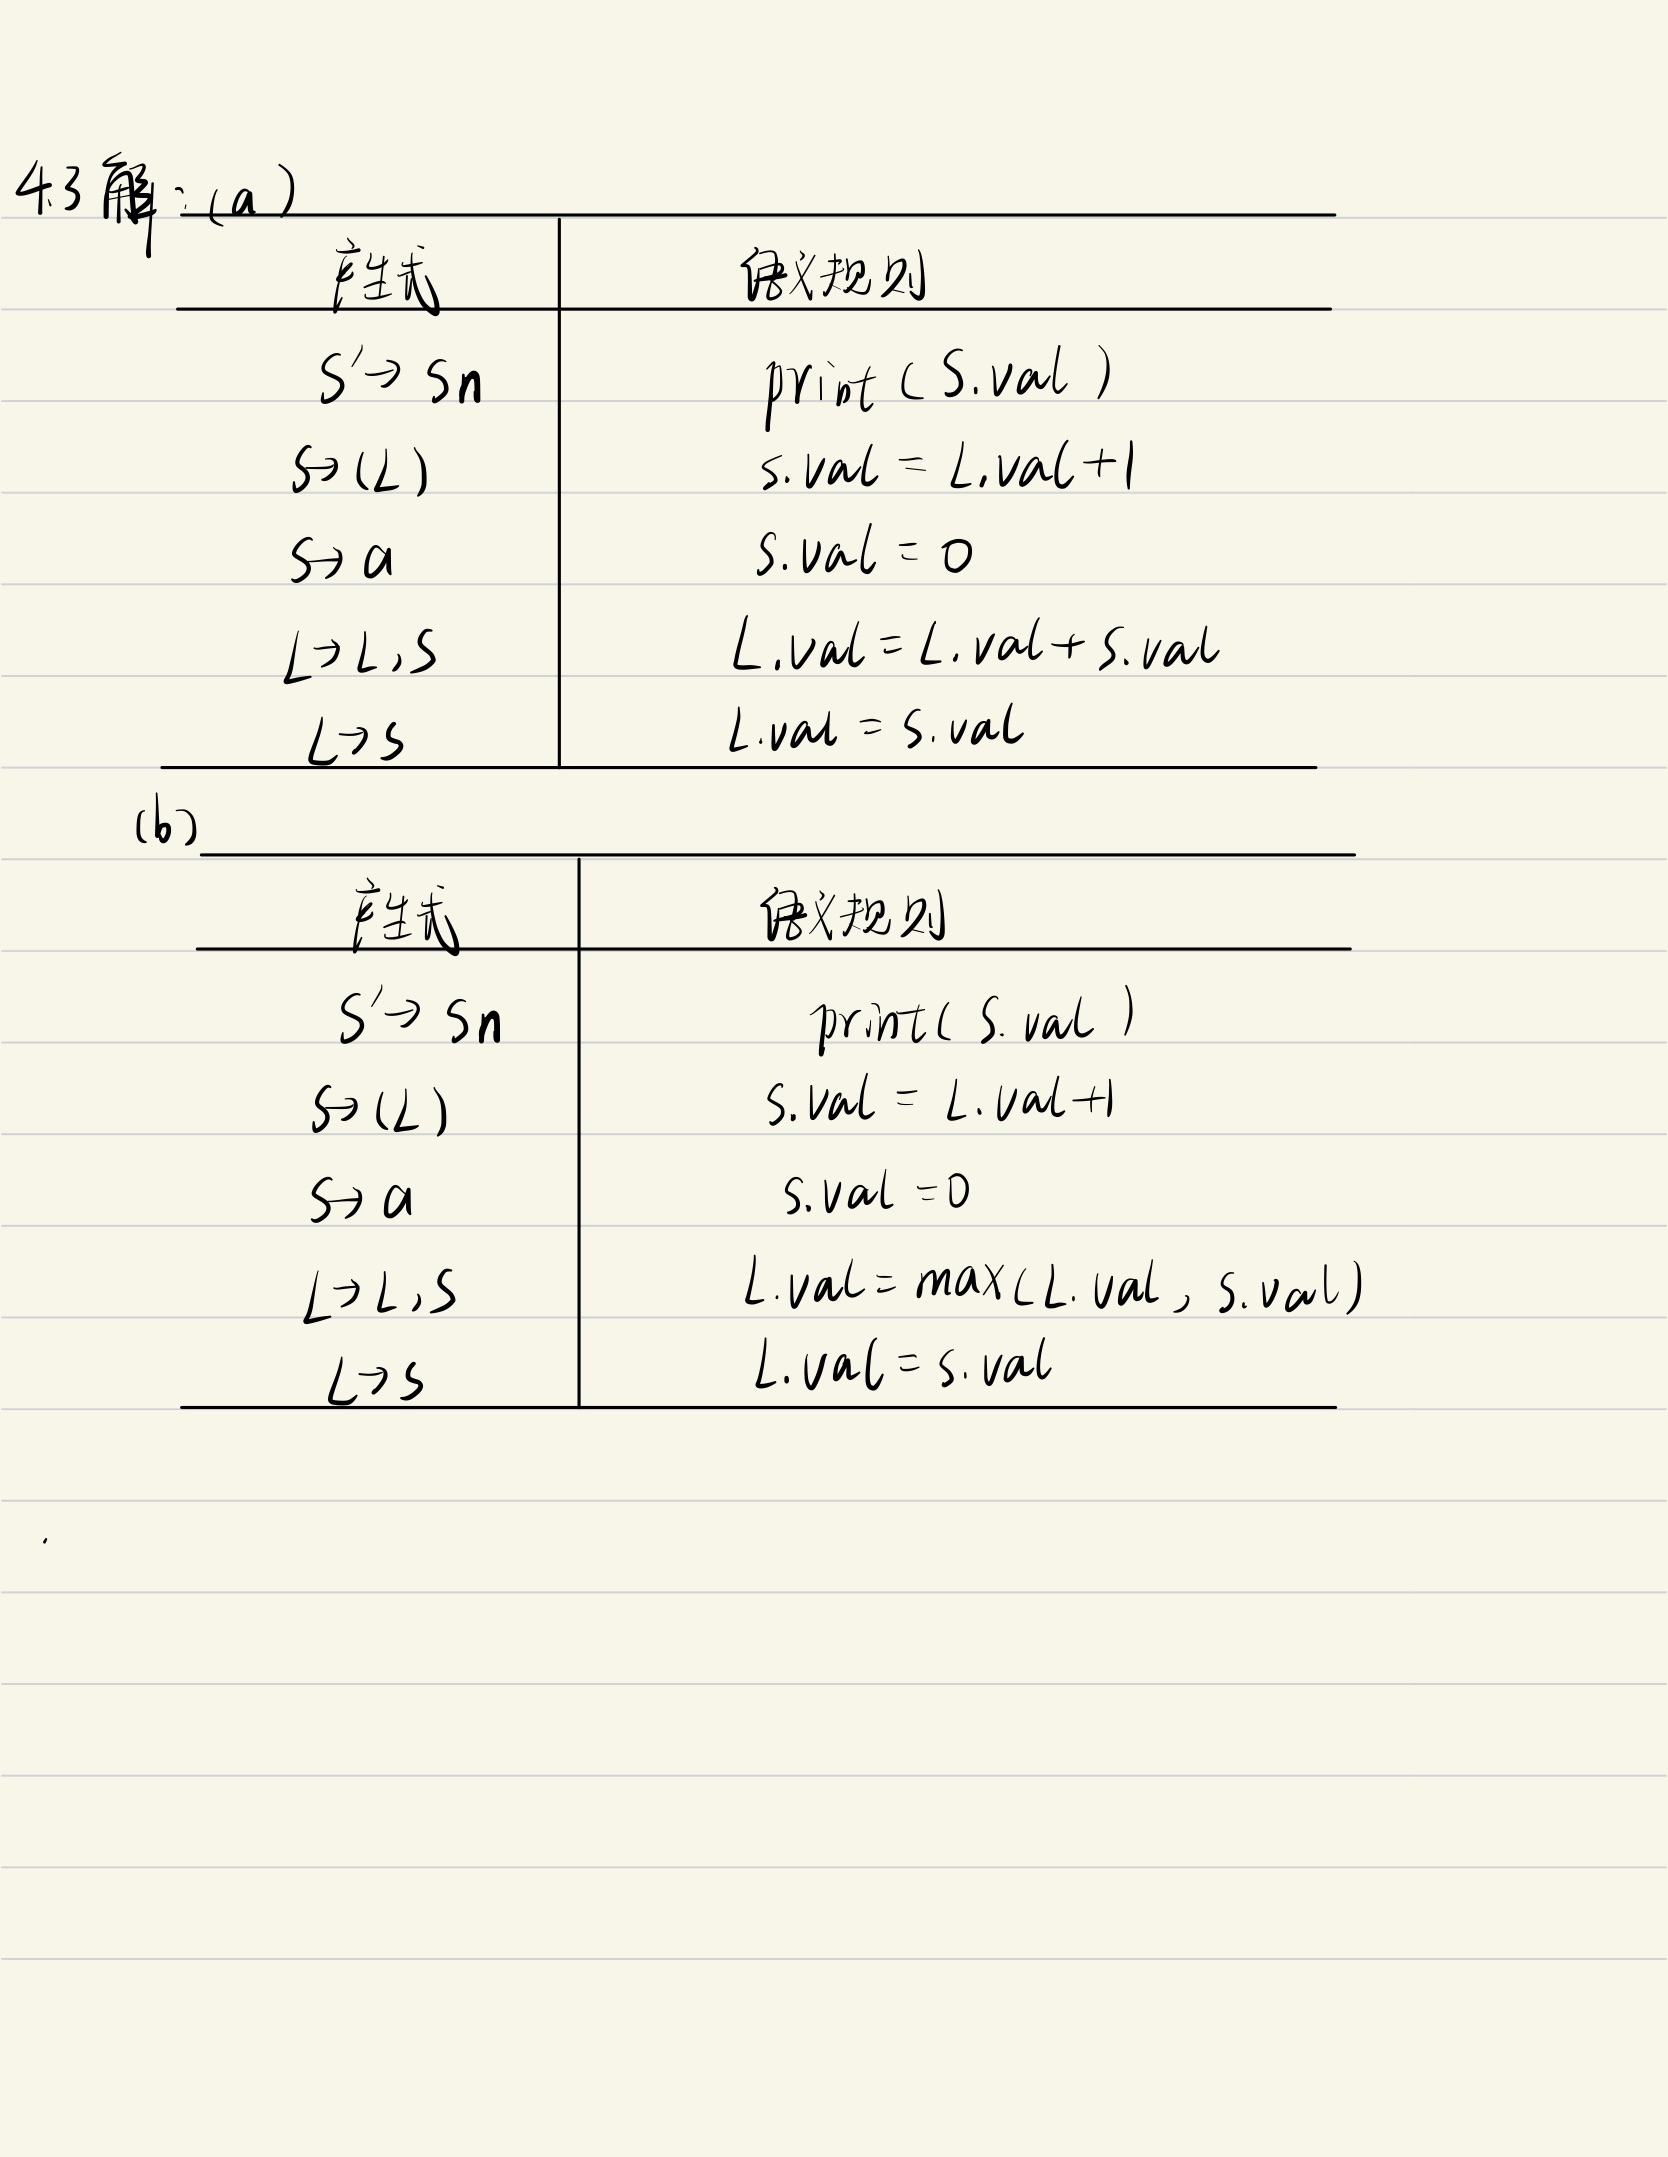 4.3 解：(a)
产生式 语义规则
S'→Sn print(S.val)
S→(L) S.val = L.val+1
S→a S.val = 0
L→L,S L.val = L.val + S.val
L→S L.val = S.val
(b)
产生式 语义规则
S'→Sn print(S.val)
S→(L) S.val = L.val+1
S→a S.val = 0
L→L,S L.val = max(L.val, S.val)
L→S L.val = S.val